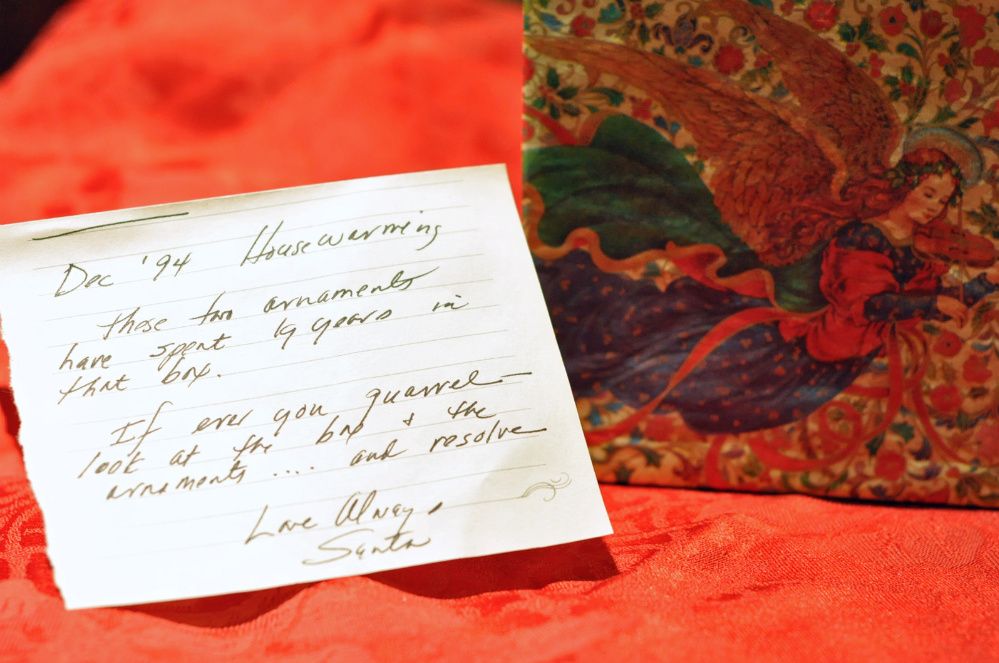 Dec '94 Housewarming
those two ornaments
have spent 19 years in
that box.
If ever you quarrel—
look at the box & the
ornaments .... and resolve
Love Always
Santa